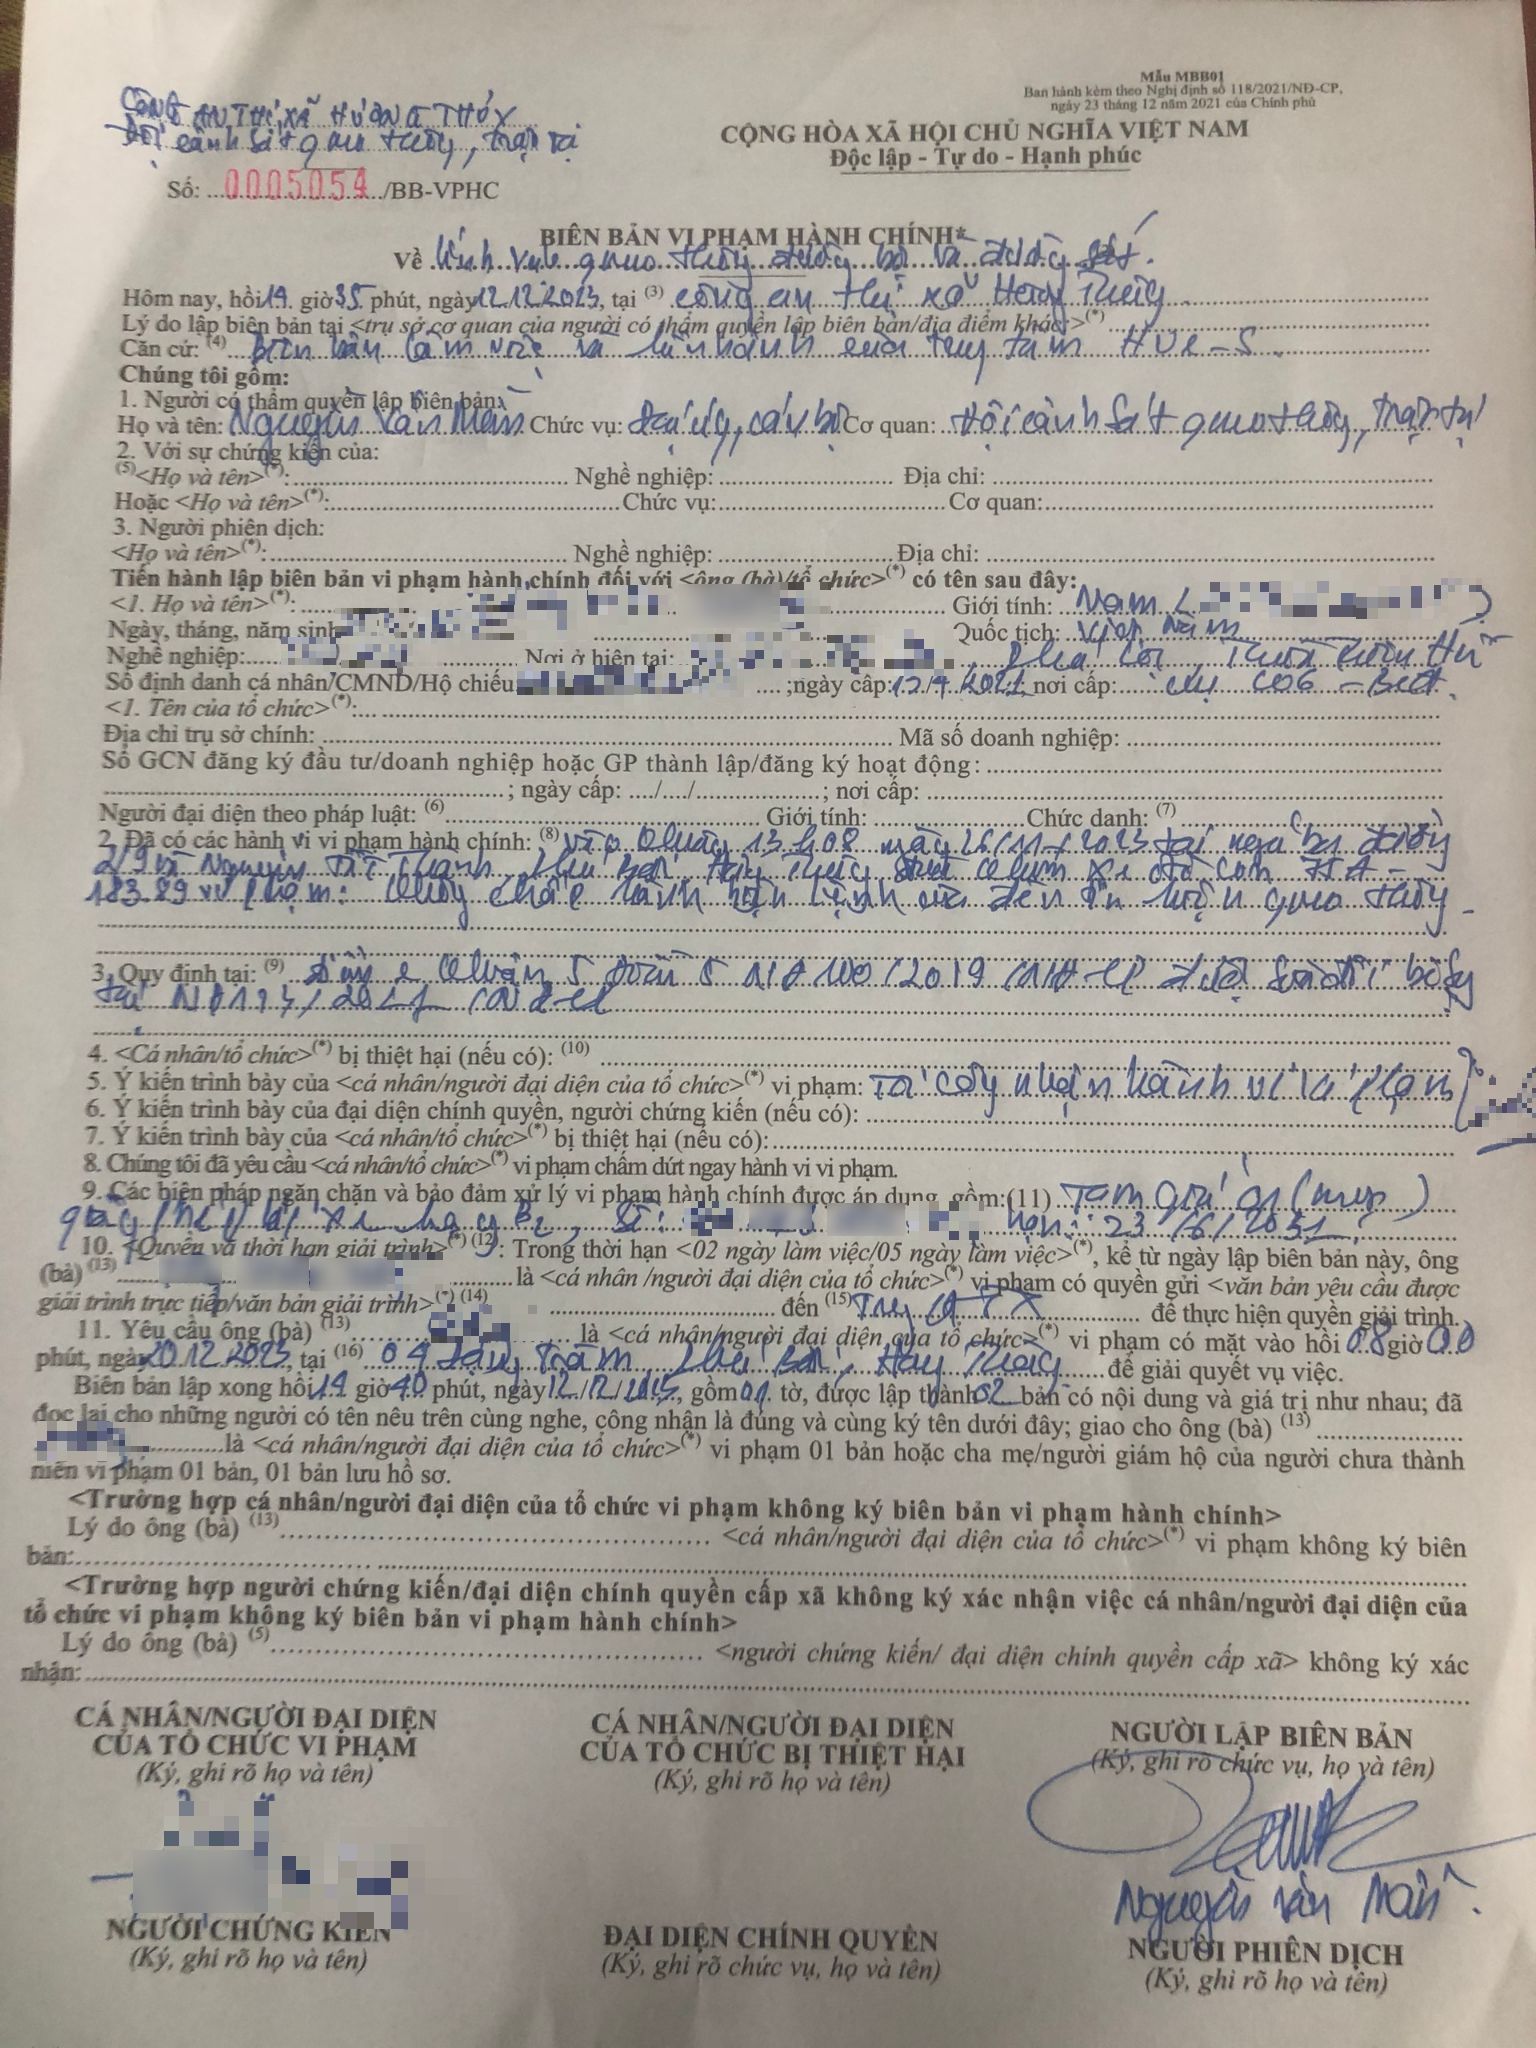 Mẫu MBB01
Ban hành kèm theo Nghị định số 118/2021/NĐ-CP,
ngày 23 tháng 12 năm 2021 của Chính phủ
CÔNG AN THỊ XÃ HƯƠNG THỦY
Đội cảnh sát giao thông, trật tự
CỘNG HÒA XÃ HỘI CHỦ NGHĨA VIỆT NAM
Độc lập - Tự do - Hạnh phúc
Số: 0005054 /BB-VPHC
BIÊN BẢN VI PHẠM HÀNH CHÍNH*
Về lĩnh vực giao thông đường bộ và đường sắt.
Hôm nay, hồi 14 giờ 35 phút, ngày 12.12.2023, tại (3) công an thị xã Hương Thủy
Lý do lập biên bản tại <trụ sở cơ quan của người có thẩm quyền lập biên bản/địa điểm khác>(*)
Căn cứ: (4) Biên bản làm việc và
Chúng tôi gồm:
1. Người có thẩm quyền lập biên bản:
Họ và tên: Nguyễn Văn Mẫn Chức vụ: cán bộ Cơ quan: Đội cảnh sát giao thông, trật tự
2. Với sự chứng kiến của:
(5)<Họ và tên>(*): Nghề nghiệp: Địa chỉ:
Hoặc <Họ và tên>(*): Chức vụ: Cơ quan:
3. Người phiên dịch:
<Họ và tên>(*): Nghề nghiệp: Địa chỉ:
Tiến hành lập biên bản vi phạm hành chính đối với <ông (bà)/tổ chức>(*) có tên sau đây:
<1. Họ và tên>(*): Giới tính: Nam
Ngày, tháng, năm sinh Quốc tịch: Việt Nam
Nghề nghiệp: Nơi ở hiện tại: , Thừa Thiên Huế
Số định danh cá nhân/CMND/Hộ chiếu ;ngày cấp: 2021; nơi cấp:
<1. Tên của tổ chức>(*):
Địa chỉ trụ sở chính: Mã số doanh nghiệp:
Số GCN đăng ký đầu tư/doanh nghiệp hoặc GP thành lập/đăng ký hoạt động:
; ngày cấp: ..../..../ ; nơi cấp:
Người đại diện theo pháp luật: (6) Giới tính: Chức danh: (7)
2. Đã có các hành vi vi phạm hành chính: (8) vào khoảng 13h08 ngày 26/11/2023 tại ngã ba đường
2/9 và Nguyễn Tất Thành, Phú Bài, Hương Thủy
183.89 vi phạm: Không chấp hành hiệu lệnh của đèn tín hiệu giao thông.
3. Quy định tại: (9) khoản 5 Điều 5 NĐ 100/2019/NĐ-CP được sửa đổi bổ sung
tại NĐ 123/2021/NĐ-CP
4. <Cá nhân/tổ chức>(*) bị thiệt hại (nếu có): (10)
5. Ý kiến trình bày của <cá nhân/người đại diện của tổ chức>(*) vi phạm: Tôi công nhận hành vi vi phạm
6. Ý kiến trình bày của đại diện chính quyền, người chứng kiến (nếu có):
7. Ý kiến trình bày của <cá nhân/tổ chức>(*) bị thiệt hại (nếu có):
8. Chúng tôi đã yêu cầu <cá nhân/tổ chức>(*) vi phạm chấm dứt ngay hành vi vi phạm.
9. Các biện pháp ngăn chặn và bảo đảm xử lý vi phạm hành chính được áp dụng gồm:(11) Tạm giữ 01 (một)
giấy phép lái xe hạng B2, Số: hạn: 23/6/2031.
10. <Quyền và thời hạn giải trình>(*) (12): Trong thời hạn <02 ngày làm việc/05 ngày làm việc>(*), kể từ ngày lập biên bản này, ông
(bà) (13) là <cá nhân /người đại diện của tổ chức>(*) vi phạm có quyền gửi <văn bản yêu cầu được
giải trình trực tiếp/văn bản giải trình>(*) (14) đến (15) để thực hiện quyền giải trình.
11. Yêu cầu ông (bà) (13) là <cá nhân/người đại diện của tổ chức>(*) vi phạm có mặt vào hồi 08 giờ 00
phút, ngày 20.12.2023, tại (16) 04 Phú Bài, Hương Thủy để giải quyết vụ việc.
Biên bản lập xong hồi 14 giờ 40 phút, ngày 12/12/2023, gồm 01 tờ, được lập thành 02 bản có nội dung và giá trị như nhau; đã
đọc lại cho những người có tên nêu trên cùng nghe, công nhận là đúng và cùng ký tên dưới đây; giao cho ông (bà) (13)
là <cá nhân/người đại diện của tổ chức>(*) vi phạm 01 bản hoặc cha mẹ/người giám hộ của người chưa thành
niên vi phạm 01 bản, 01 bản lưu hồ sơ.
<Trường hợp cá nhân/người đại diện của tổ chức vi phạm không ký biên bản vi phạm hành chính>
Lý do ông (bà) (13) <cá nhân/người đại diện của tổ chức>(*) vi phạm không ký biên
bản:
<Trường hợp người chứng kiến/đại diện chính quyền cấp xã không ký xác nhận việc cá nhân/người đại diện của
tổ chức vi phạm không ký biên bản vi phạm hành chính>
Lý do ông (bà) (5) <người chứng kiến/ đại diện chính quyền cấp xã> không ký xác
nhận:
CÁ NHÂN/NGƯỜI ĐẠI DIỆN
CỦA TỔ CHỨC VI PHẠM
(Ký, ghi rõ họ và tên)
CÁ NHÂN/NGƯỜI ĐẠI DIỆN
CỦA TỔ CHỨC BỊ THIỆT HẠI
(Ký, ghi rõ họ và tên)
NGƯỜI LẬP BIÊN BẢN
(Ký, ghi rõ chức vụ, họ và tên)
Nguyễn Văn Mẫn
NGƯỜI CHỨNG KIẾN
(Ký, ghi rõ họ và tên)
ĐẠI DIỆN CHÍNH QUYỀN
(Ký, ghi rõ chức vụ, họ và tên)
NGƯỜI PHIÊN DỊCH
(Ký, ghi rõ họ và tên)